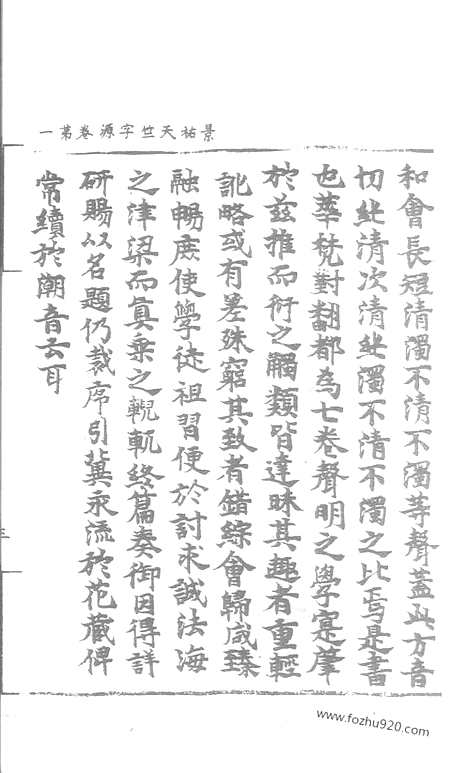 景祐天竺字源卷第一
和會長短清濁不清不濁等聲蓋此方音
切此清次清此濁不清不濁之比焉是書
也華梵對翻都為七卷聲明之學寔肇
於茲推而衍之觸類皆達昧其趣者重輕
訛略或有差殊窮其致者錯綜會歸咸臻
融暢庶使學徒祖習便於討求誠法海
之津梁而真乘之輗軏終篇奏御因得詳
研賜以名題仍裁序引冀永流於花藏俾
常續於潮音云耳
www.fozhu920.com